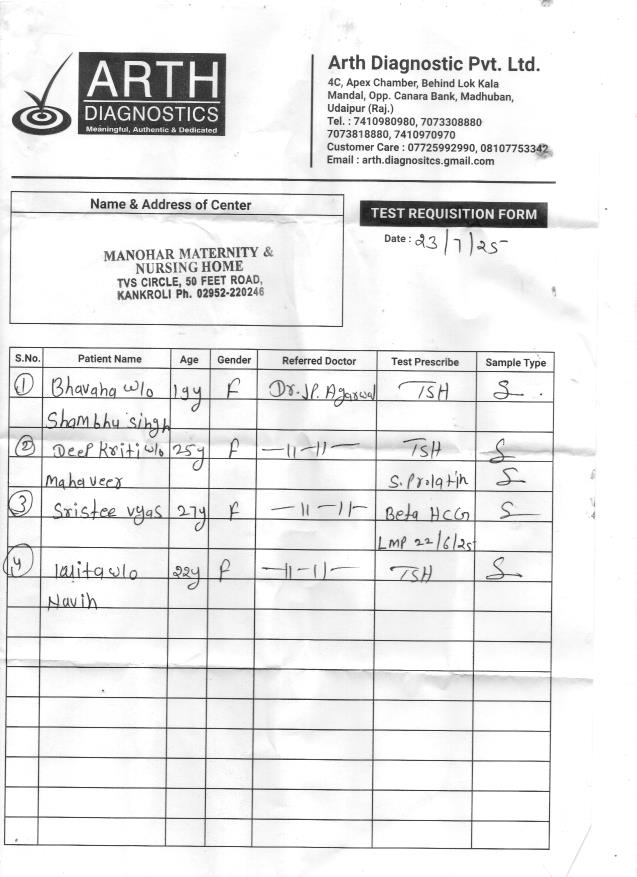 ARTH
DIAGNOSTICS
Meaningful, Authentic & Dedicated
Arth Diagnostic Pvt. Ltd.
4C, Apex Chamber, Behind Lok Kala
Mandal, Opp. Canara Bank, Madhuban,
Udaipur (Raj.)
Tel. : 7410980980, 7073308880
7073818880, 7410970970
Customer Care : 07725992990, 08107753342
Email : arth.diagnositcs.gmail.com
Name & Address of Center
MANOHAR MATERNITY &
NURSING HOME
TVS CIRCLE, 50 FEET ROAD,
KANKROLI Ph. 02952-220246
TEST REQUISITION FORM
Date : 23/7/25
S.No. Patient Name Age Gender Referred Doctor Test Prescribe Sample Type
1 Bhavana w/o 19y F Dr. J.P. Agarwal TSH S
Shambhu singh
2 Deep Kriti w/o 25y F —11—11— TSH S
Mahaveer S. Prolatin S
3 Sristee vyas 27y F —11—11— Beta HCG S
LMP 22/6/25
4 lalita w/o 22y F —11—11— TSH S
Navin